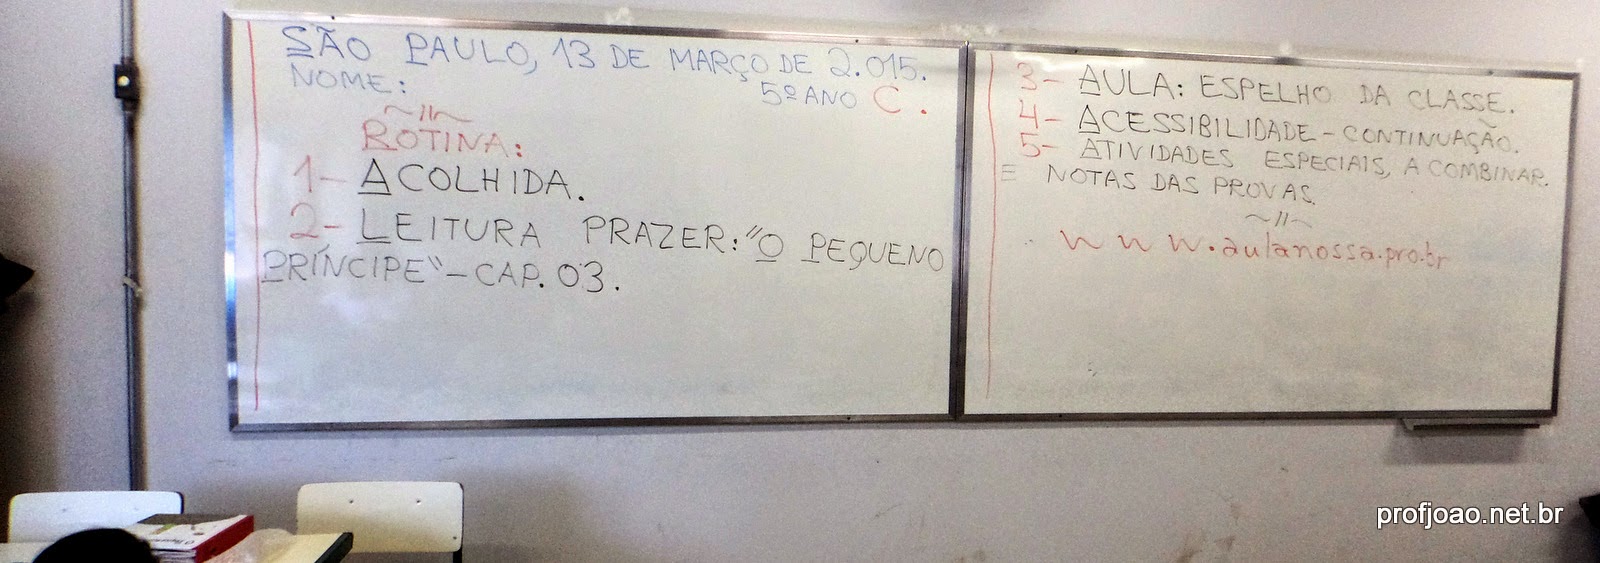 SÃO PAULO, 13 DE MARÇO DE 2.015.
NOME:
5º ANO C.
~//~
ROTINA:
1- ACOLHIDA.
2- LEITURA PRAZER: "O PEQUENO
PRÍNCIPE" - CAP. 03.
3- AULA: ESPELHO DA CLASSE.
4- ACESSIBILIDADE - CONTINUAÇÃO.
5- ATIVIDADES ESPECIAIS, A COMBINAR.
E NOTAS DAS PROVAS.
~//~
www.aulanossa.pro.br
profjoao.net.br